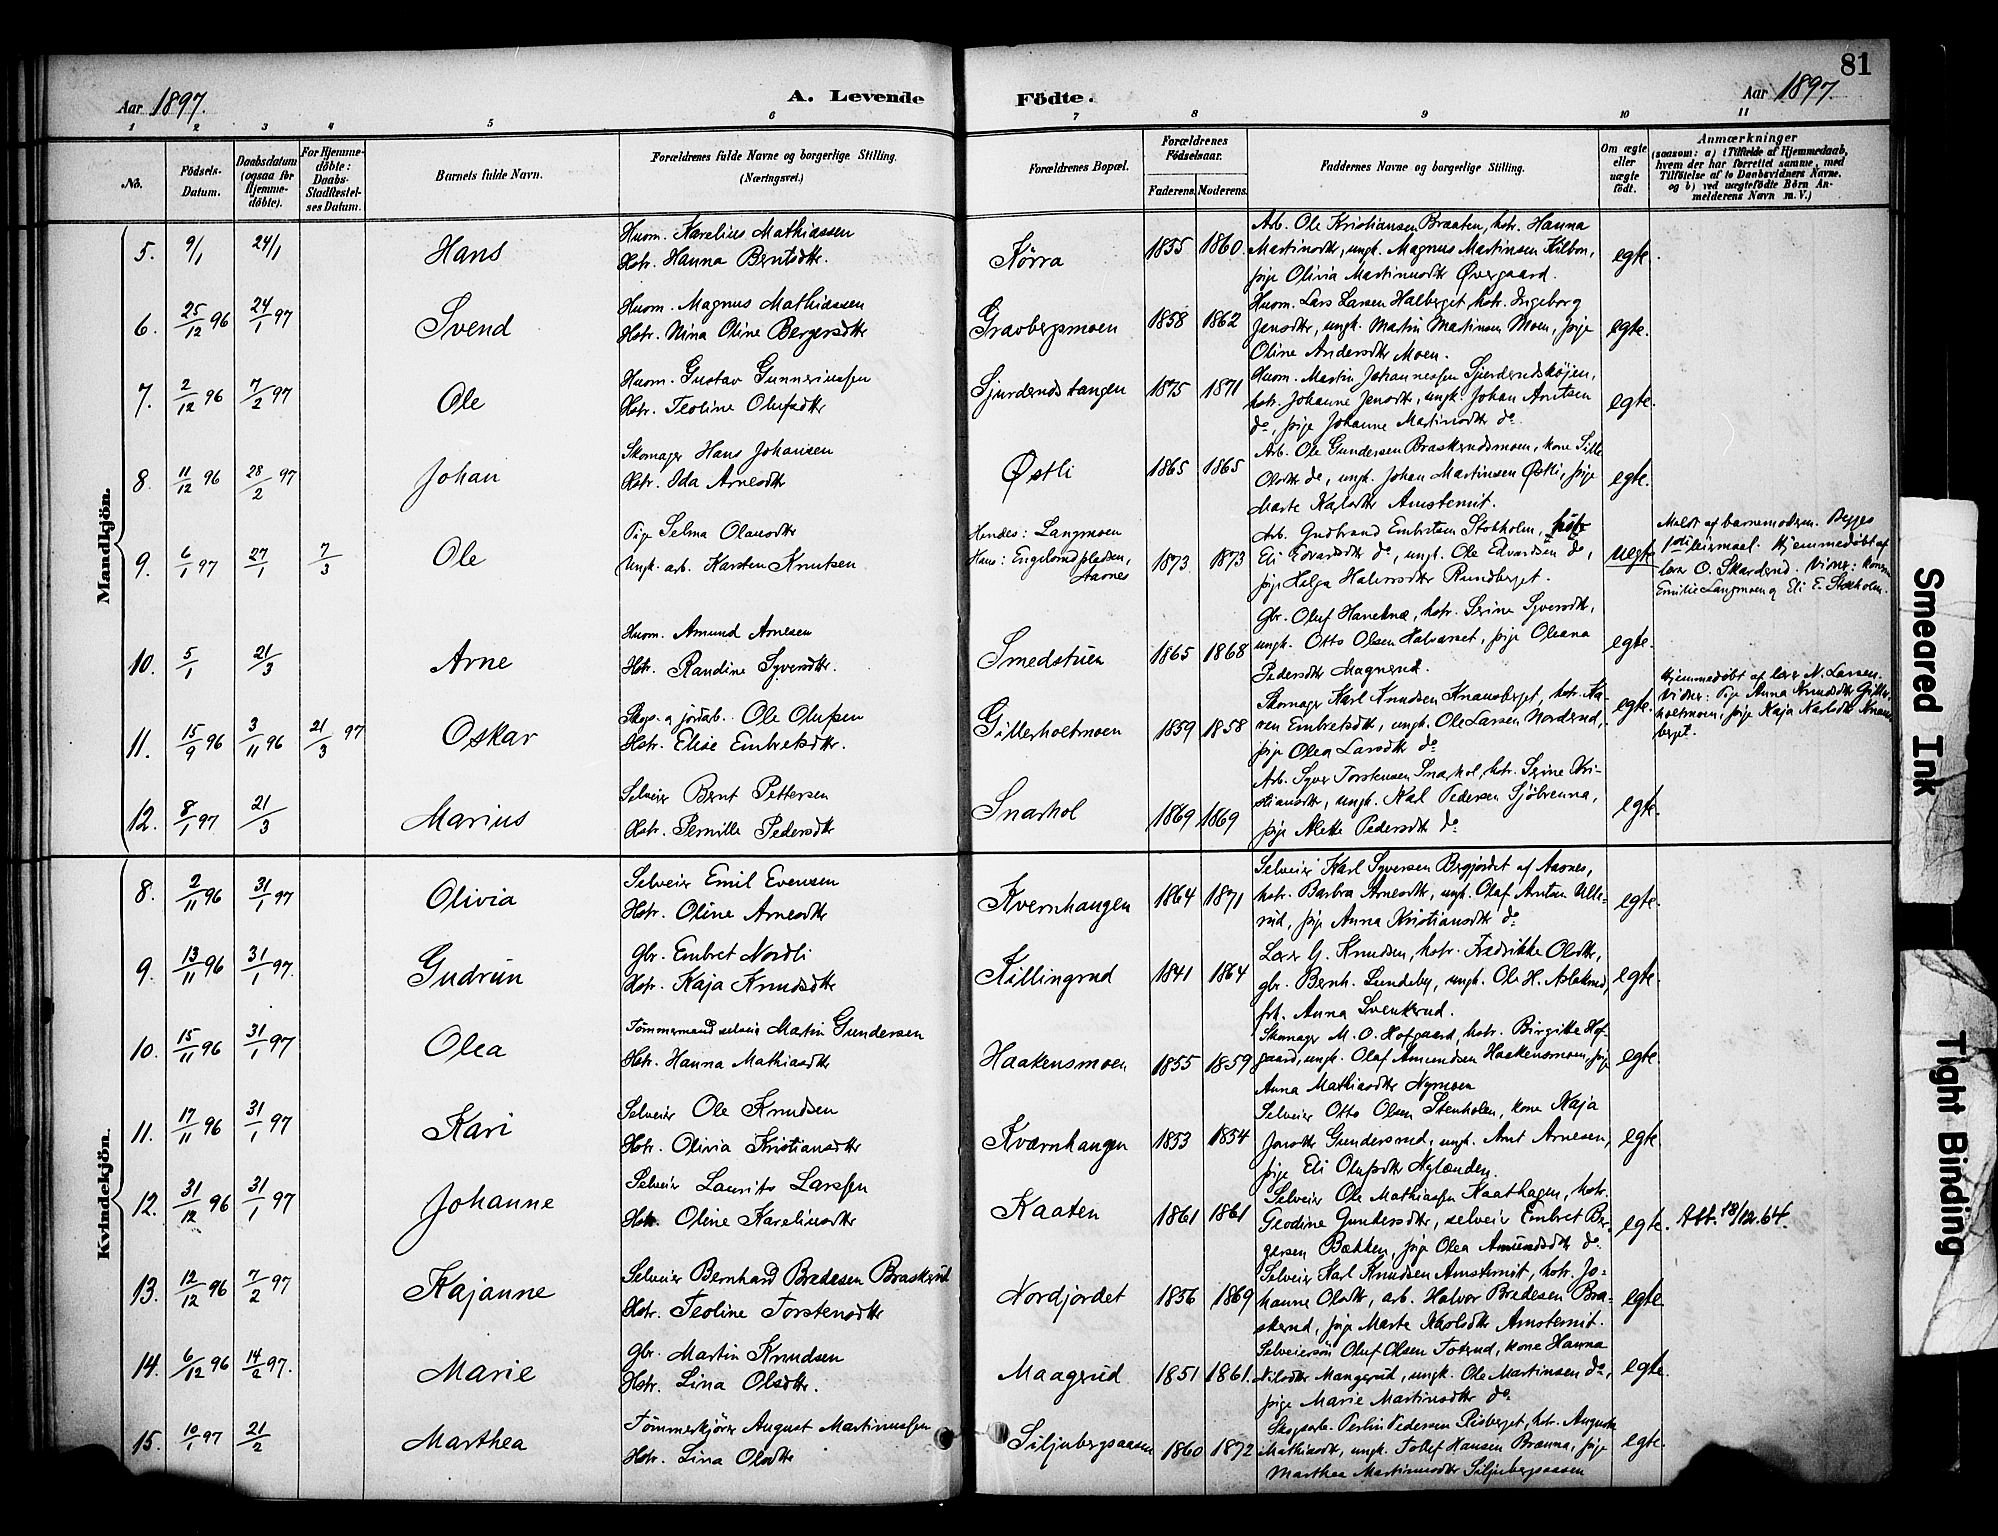 81
Aar 1897.
A. Levende Födte.
Aar 1897
1 2 3 4 5 6 7 8 9 10 11
No.
Födsels-Datum.
Daabsdatum (ogsaa for Hjemme-döbte).
For Hjemme-döbte: Daabs-Stadfæstel-ses Datum.
Barnets fulde Navn.
Forældrenes fulde Navne og borgerlige Stilling. (Næringsvei.)
Forældrenes Bopæl.
Forældrenes Födselsaar.
Faderens. Moderens.
Faddernes Navne og borgerlige Stilling.
Om ægte eller uægte födt.
Anmærkninger
(saasom: a) i Tilfælde af Hjemmedaab,
hvem der har forrettet samme, med
Tilföielse af to Daabsvidners Navne.
og b) ved uægtefödte Börn An-
melderens Navn m. V.)
Mandkjön.
5. 9/1 24/1 Hans
Huom. Karelius Mathiassen
Hstr. Hanna Berntsdtr.
Kørra 1855 1860.
Arb. Ole Kristiansen Braaten, hstr. Hanna
Martinsdtr, ungk. Magnus Martinsen Kilbon,
pige Olivia Martinusdtr Øvergaard.
egte.
6. 25/12 96 24/1 97 Svend
Huom. Magnus Mathiassen
Hstr. Nina Oline Bergersdtr
Gravbergsmoen 1858 1862
Huom. Lars Larsen Halberget hstr. Ingeborg
Jensdtr, ungk. Martin Martinsen Moen, pige
Oline Andersdtr Moen.
egte.
7. 2/12 96 7/2 97 Ole
Huom. Gustav Gunneriussen
Hstr. Teoline Olufsdtr
Sjurderudstangen 1875 1871
Huom. Martin Johannessen Sjurderudshøjen,
hstr. Johanne Jensdtr, ungk. Johan Arntsen
do, pige Johanne Martinsdtr do.
egte.
8. 11/12 96 28/2 97 Johan
Skomager Hans Johansen
Hstr. Ida Arnesdtr
Østli 1865 1865
Arb. Ole Gundersen Braskerudsmoen, kone Sille
Olsdtr do, ungk. Johan Martinsen Østli, pige
Marte Karlsdtr Amsterud.
egte.
9. 6/1 97 27/1 7/3 Ole
Pige Selma Olausdtr
Ungk. arb. Karsten Knutsen
Hendes: Langmoen
Hans: Engelsrudpladsen, Aasnes
1873 1873
Arb. Gudbrand Embretsen Stokholm, hstr
Eli Edvardsdtr do, ungk. Ole Edvardsen do,
pige Helga Halvorsdtr Rundberget.
uegte
Meldt af barnemoderen. Begges
1ste leiermaal. Hjemmedøbt af
lærer O. Skarderud. Vidner: kone
Emilie Langmoen og Eli E. Stokholm.
10. 5/1 21/3 Arne
Huom. Amund Arnesen
Hstr. Randine Syversdtr.
Smedstuen 1865 1868
Gbr. Oluf Haneknæ, hstr. Serine Syversdtr,
ungk. Otto Olsen Halvorset, pige Oleana
Pedersdtr Magnerud.
egte.
11. 15/9 96 3/11 96 21/3 97 Oskar
Skogs- og jordarb. Ole Olufsen
Hstr. Elise Embretsdtr.
Gillerholtmoen 1859 1858
Skomager Karl Knudsen Knausberget, hstr. Ka-
ren Embretsdtr, ungk. Ole Larsen Norderud,
pige Olea Larsdtr do
egte.
Hjemmedøbt af lærer N. Larsen.
Vidner: Pige Anna Knudsdtr Giller-
holtmoen, pige Kaja Karlsdtr Knaus-
berget.
12. 8/1 97 21/3 Marius
Selveier Bernt Pettersen
Hstr. Pernille Pedersdtr
Snarhol 1869 1869
Arb. Syver Torstensen Snarhol, hstr. Serine Kri-
stiansdtr, ungk. Karl Pedersen Sjøbrenna,
pige Alette Pedersdtr do
egte.
Kvindekjön.
8. 2/11 96 31/1 97 Olivia
Selveier Emil Evensen
Hstr. Oline Arnesdtr
Kvernhaugen 1864 1871
Selveier Karl Syversen Bergjordet af Aasnes,
hstr. Barbra Arnesdtr, ungk. Olaf Antin Ulle-
rud, pige Anna Kristiansdtr do
egte.
9. 13/11 96 31/1 97. Gudrun
Gbr. Embret Nordli
Hstr. Kaja Knudsdtr
Killingrud 1841 1864
Lærer G. Knudsen, hstr. Fredrikke Olsdtr,
gbr. Bernh. Lundeby, ungk. Ole H. Aslakrud,
frk. Anna Svenkerud.
egte.
10. 15/11 96 31/1 97 Olea
Tømmermand selveier Martin Gundersen
Hstr. Hanna Mathiasdtr
Haakensmoen 1855 1859
Skomager M. O. Hofgaard, hstr. Birgitte Hof-
gaard, ungk. Olaf Amundsen Haakensmoen, pige
Anna Mathiasdtr Nymoen
egte.
11. 17/11 96 31/1 97 Kari
Selveier Ole Knudsen
Hstr. Olivia Kristiansdtr
Kværnhaugen 1853 1854
Selveier Otto Olsen Stenholen, kone Kaja
Jensdtr Gundersrud, ungk. Arnt Arnesen,
pige Eli Olufsdtr Nylænden.
egte.
12. 31/12 96 31/1 97 Johanne
Selveier Laurits Larssen
Hstr. Oline Kareliusdtr
Kaaten 1861 1861
Selveier Ole Mathiassen Kaathagen, hstr.
Geodine Gundersdtr, selveier Embret Ber-
gersen Bækken, pige Olea Amundsdtr do.
egte. Att. 18/12.64.
13. 12/12 96 7/2 97 Kajanne
Selveier Bernhard Bredesen Braskerud
Hstr. Teoline Torstensdtr
Nordjordet 1856 1869
Selveier Karl Knudsen Amsterud, hstr. Jo-
hanne Olsdtr, arb. Halvor Bredesen Bra-
skerud, pige Marte Karlsdtr Amsterud.
egte.
14. 6/12 96 14/2 97. Marie
Gbr. Martin Knudsen
Hstr. Lina Olsdtr.
Maagrud 1851 1861.
Selveiersøn Oluf Olsen Toterud, kone Hanna
Nilsdtr Mangerud, ungk. Ole Martinsen do,
pige Marie Martinsdtr do.
egte.
15. 10/1 97 21/2 Marthea
Tømmerkjører August Martinussen
Hstr. Lina Olsdtr
Siljubergsaasen 1860 1872
Skogsarb. Perlin Pedersen Risberget, hstr. Auguste
Mathiasdtr, ungk. Tollef Hansen Brænna, pige
Marthea Martinusdtr Siljubergsaasen
egte.
Smeared Ink
Tight Binding